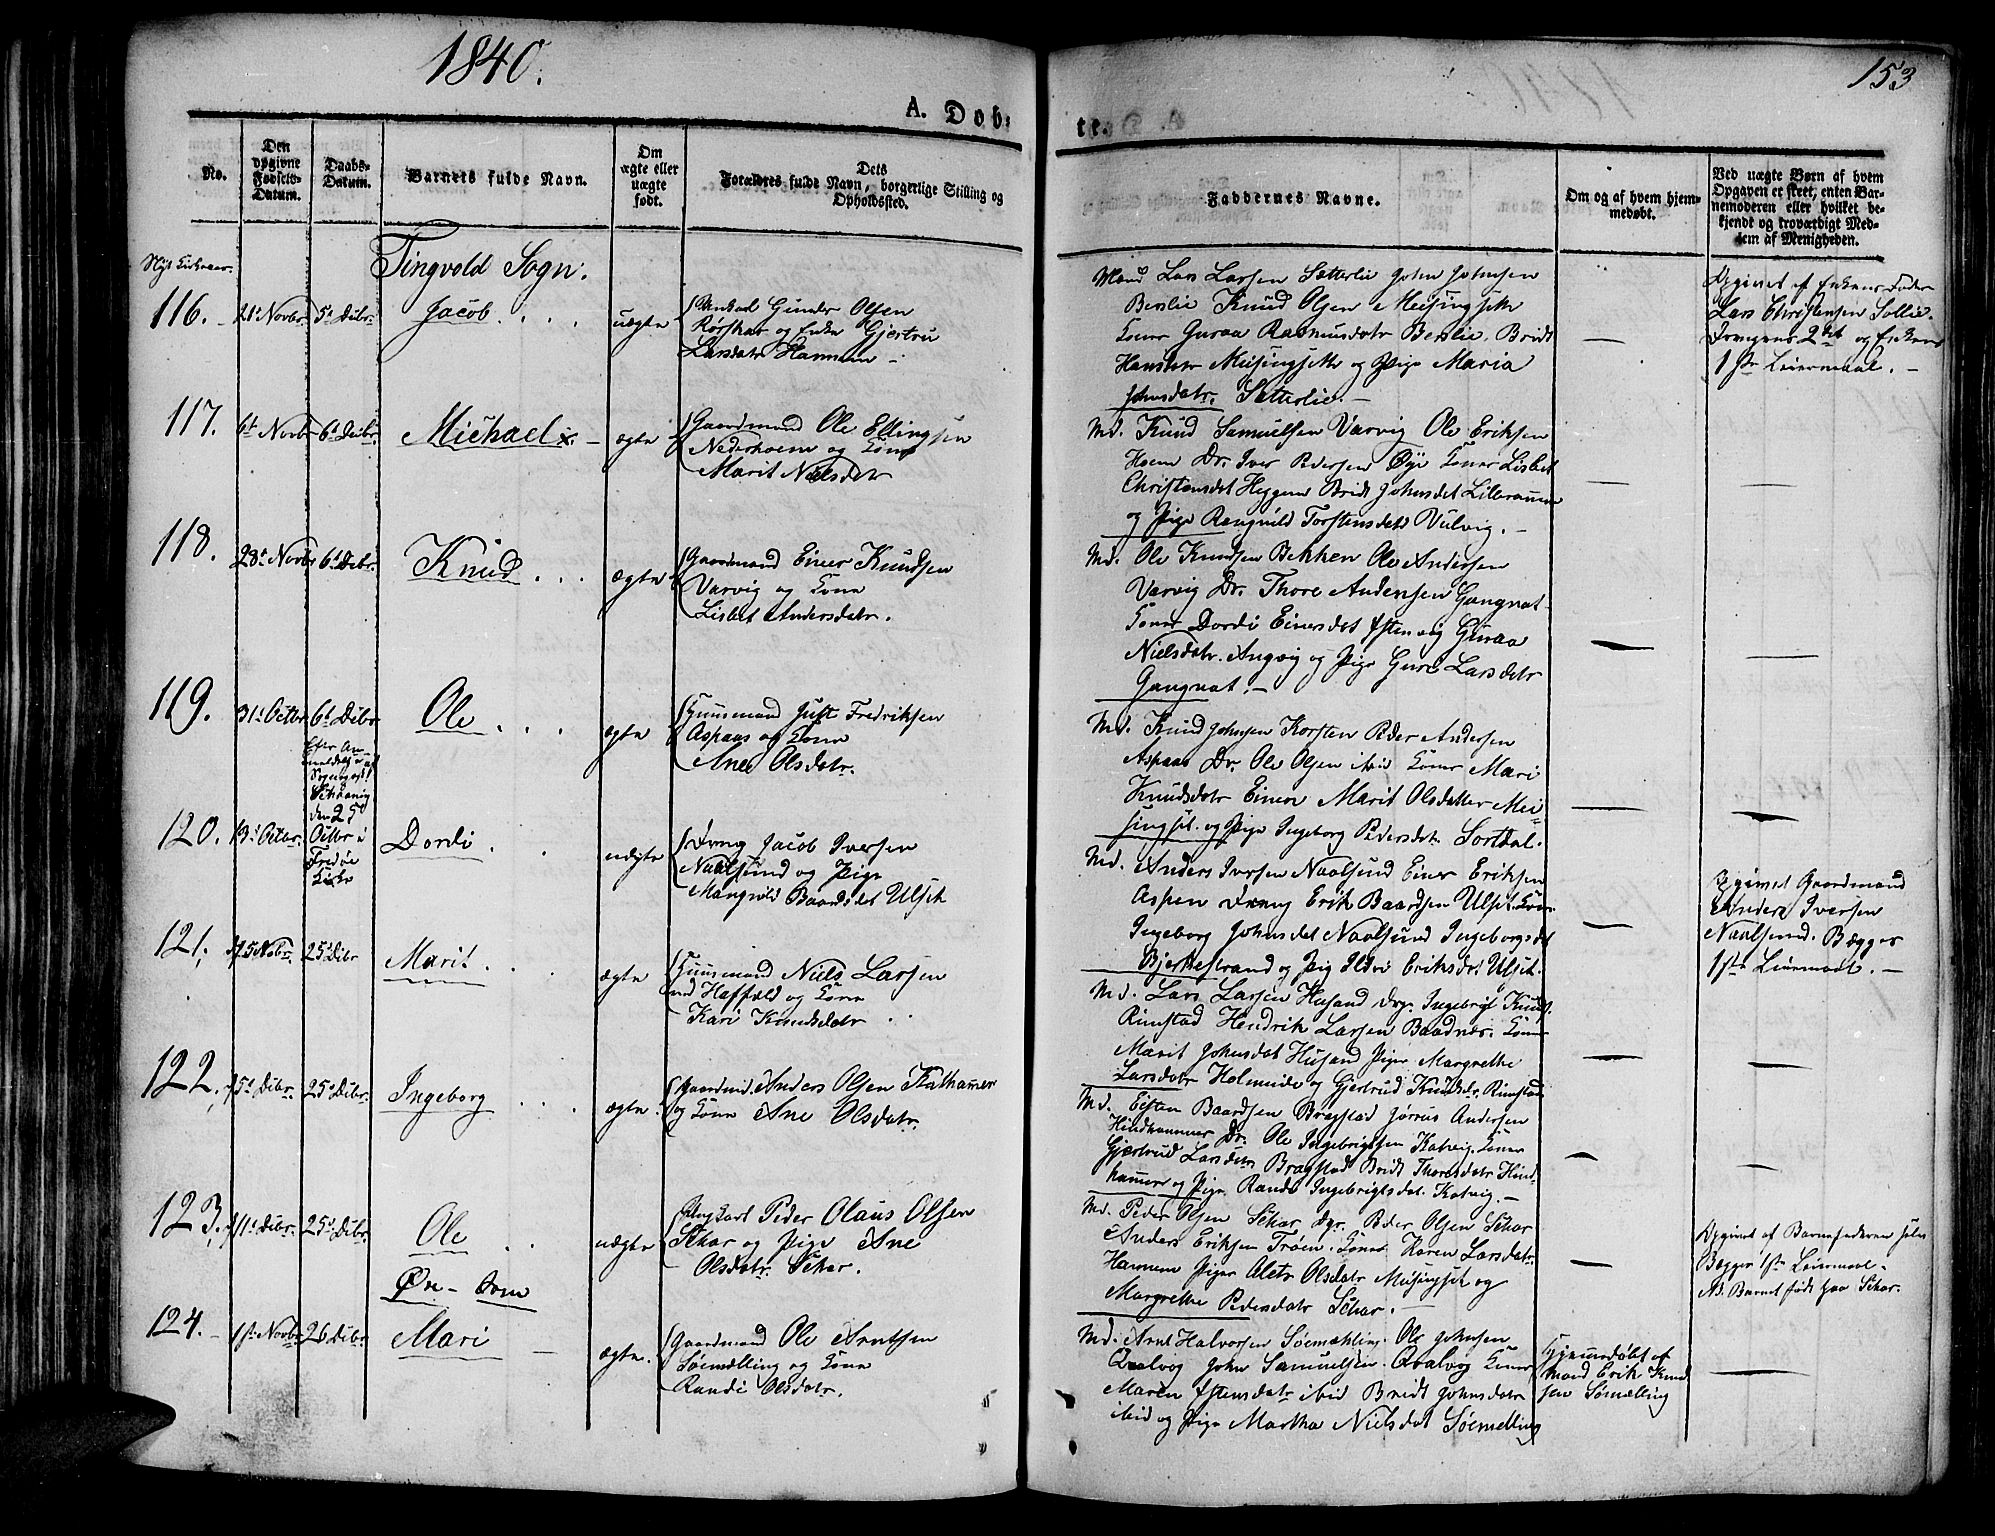 1840.
153
A. Døbte.
No.
Den opgivne Fødsels-Datum.
Daabs-Datum.
Barnets fulde Navn.
Om ægte eller uægte født.
Dets Forældres fulde Navn, borgerlige Stilling og Opholdssted.
Faddernes Navne.
Om og af hvem hjemmedøbt.
Ved uægte Børn af hvem Opgaven er skeet, enten Barnemoderen eller hvilket bekjendt og troværdigt Medlem af Menigheden.
Tingvold Sogn.
116.
21de Novbr
5te Dcbr
Jacob
uægte
Gunder Olsen
Rørskar og Enke Gjertru
Larsdatr Hannem
Mænd Lars Larsen Sætterlie John Johnsen
Berslie Knud Olsen Meisingseth
Koner Guraa Rasmusdatr Berslie, Bridt
Hansdatr Meisingseth og Pige Maria
Johnsdatr. Sætterlie.
Opgivet af Enkens Fader
Lars Christensen Sollie.
Drengens 2det og Enkens
1ste Leiermaal.
117.
6te Novbr
6te Decbr
Michael
ægte
Gaardmand Ole Ellingsen
Nederhoem og Kone
Marit Nielsdatr
Md. Knud Samuelsen Varvig Ole Eriksen
Hoem Dr. Iver Pedersen Øye Koner Lisbet
Christensdat Heggem Bridt Johnsdat
og Pige Rangnild Torstensdatr Vulvig.
118.
28de Novbr
6te Dcbr.
Knud
ægte
Gaardmand Einer Knudsen
Varvig og Kone
Lisbet Andersdatr.
Md. Ole Knudsen Bekken Ole Andersen
Varvig Dr. Thore Andersen Gangnat
Koner Dordi Einersdat og Guraa
Nielsdatr. Angvig og Pige Guro Larsdatr
Gangnat.
119.
31te Octbr
6te Dcbr
Ole
ægte
Huusmand Just Fredriksen
Aspaas og Kone
Ane Olsdatr.
Md. Knud Johnsen Korsten Peder Andersen
Aspaas Dr. Ole Olsen ibid Koner Mari
Knudsdatr Einer Marit Olsdatter Mei-
singset. og Pige Ingeborg Pedersdatr
120.
13de Octbr.
den 25de
Octbr i
Fredøe
Kirke
Dordi
uægte
Dreng Jacob Iversen
Naalsund og Pige
Mangnild Baardsdat Ulset
Md. Anders Iversen Naalsund Einer Eriksen
Aspen Dreng Erik Baardsen Ulset. Kone
Ingeborg Johnsdat Naalsund Ingeborg
Bjerkestrand og Pig Ildri Eriksdat Ulset.
Opgivet Gaardmand
Anders Iversen
Naalsund. Begges
1ste Leiermaal.
121.
25de Dcbr
Marit
ægte
Huusmand Niels Larsen
og Kone
Kari Knudsdatr
Md. Lars Larsen Husand Drg. Ingebrigt Knuds.
Rimstad Hendrik Larsen Baadnes. Koner
Marit Johnsdat Husand Piger Margrethe
Larsdatr Holmeide og Gjertrud Knudsdr. Rimstad
122.
5te Dcbr.
25de Dcbr.
Ingeborg
ægte
Gaardmd. Anders Olsen
og Kone Ane Olsdatr.
Md. Eisten Baardsen Bragstad Jørrus Andersen
Hindhammer Dr. Ole Ingebrigtsen Kalvig. Koner
Gjertrud Larsdatr Bragstad Bridt Thoresdatr Hind-
hammer og Pige Randi Ingebrigtsdat. Kalvig.
123.
11te Dcbr.
25de Dcbr
Ole
uægte
Ungkarl Peder Olaus Olsen
Schar og Pige Ane
Olsdatr. Schar.
Md. Peder Olsen Schar Dgr. Peder Olsen Schar
Anders Eriksen Trøen. Koner Karen Larsdatr
Hannem Piger Alet Olsdatr Meisingset og
Margrethe Pedersdatr Schar.
Opgivet af Barnefaderen selv
Begges 1ste Leiermaal.
NB. Barnet født paa Schar.
Øre-Sogn
124.
1ste Novbr
26 Dcbr
Mari
ægte.
Gaardmand Ole Arntsen
Søemælling og Kone
Randi Olsdatr.
Md. Arnt Halvorsen Søemæhling. Ole Johnsen
Qvalvog John Samuelsen. Qvalvog Koner
Maren Estensdatr ibid Bridt Johnsdatr
ibid og Pige Martha Nielsdat Søemelling
Hjemmedøbt af
Mand Erik Knud-
sen Søemelling